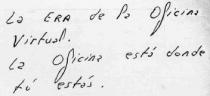 La ERA de la Oficina
Virtual.
La Oficina está donde
tú estás.